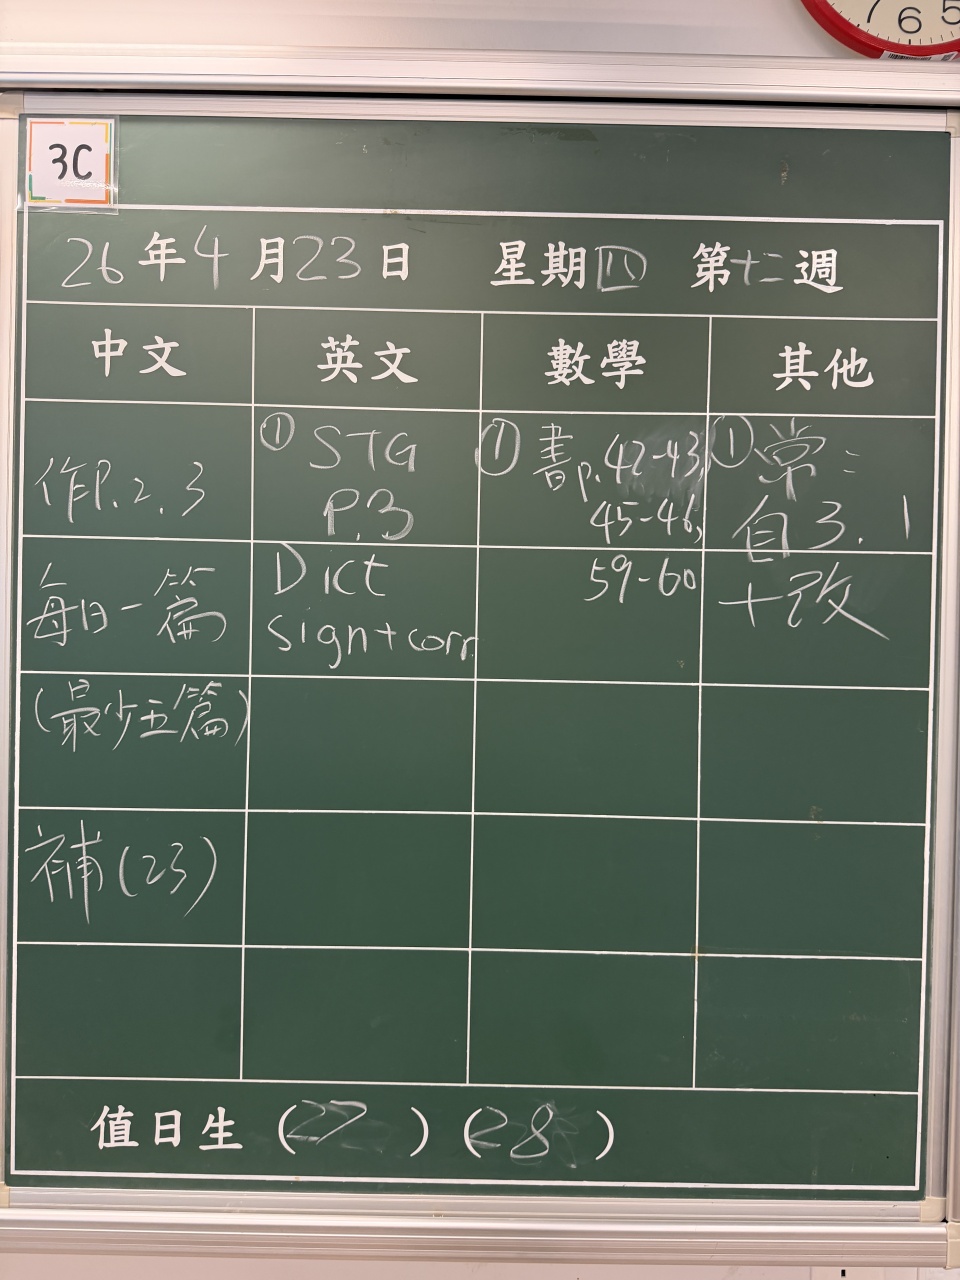 7 6 5
3C
26年4月23日 星期四 第十二週
中文 英文 數學 其他
作P.2.3
每日一篇
(最少五篇)
補(23)
① STG
P.3
Dict
sign+corr
① 書p.42-43,
45-46,
59-60
① 常:
自3.1
+改
值日生 (27) (28)